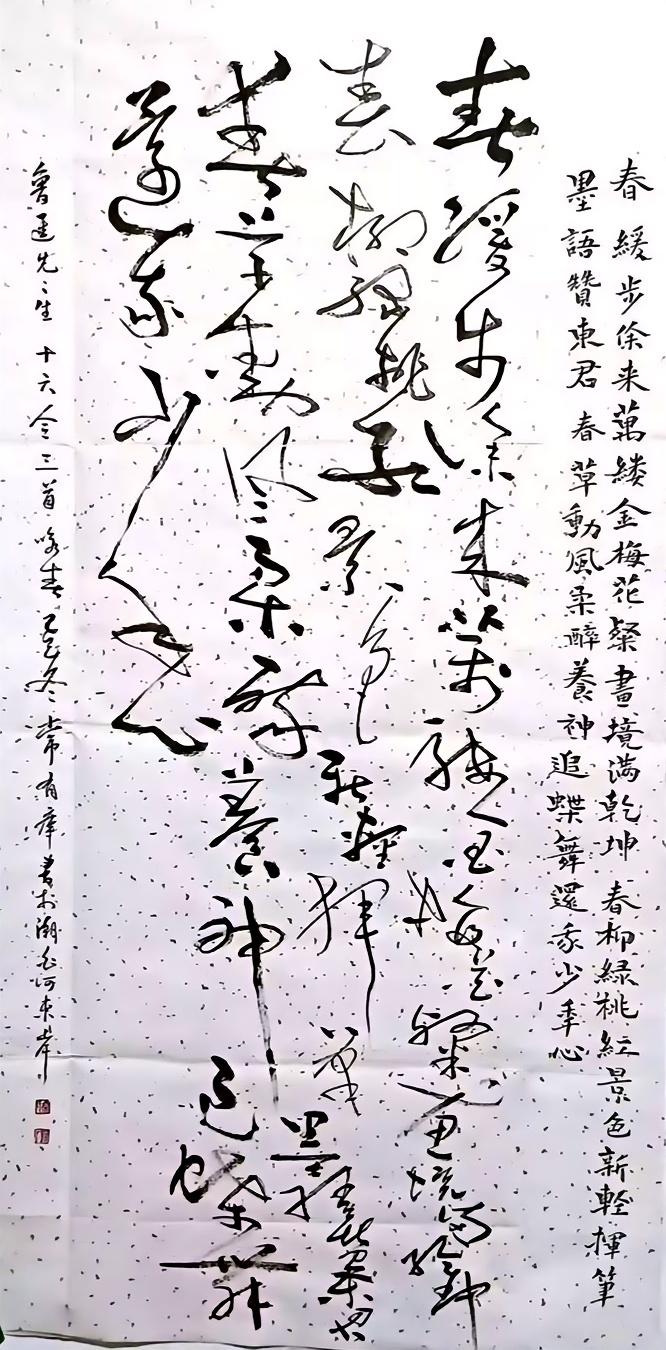 春 緩步徐来萬縷金梅花粲畫境满乾坤 春柳緑桃紅景色新輕揮筆
墨語贊東君 春草動風柔醉養神追蝶舞還我少年心
春緩步徐来萬縷金梅花粲畫境满乾坤
春柳緑桃紅景色新輕揮筆墨語贊東君
春草動風柔醉養神追蝶舞
還我少年心
遥先生 十六令三首咏春 己亥冬 常有 書於潮白河東岸